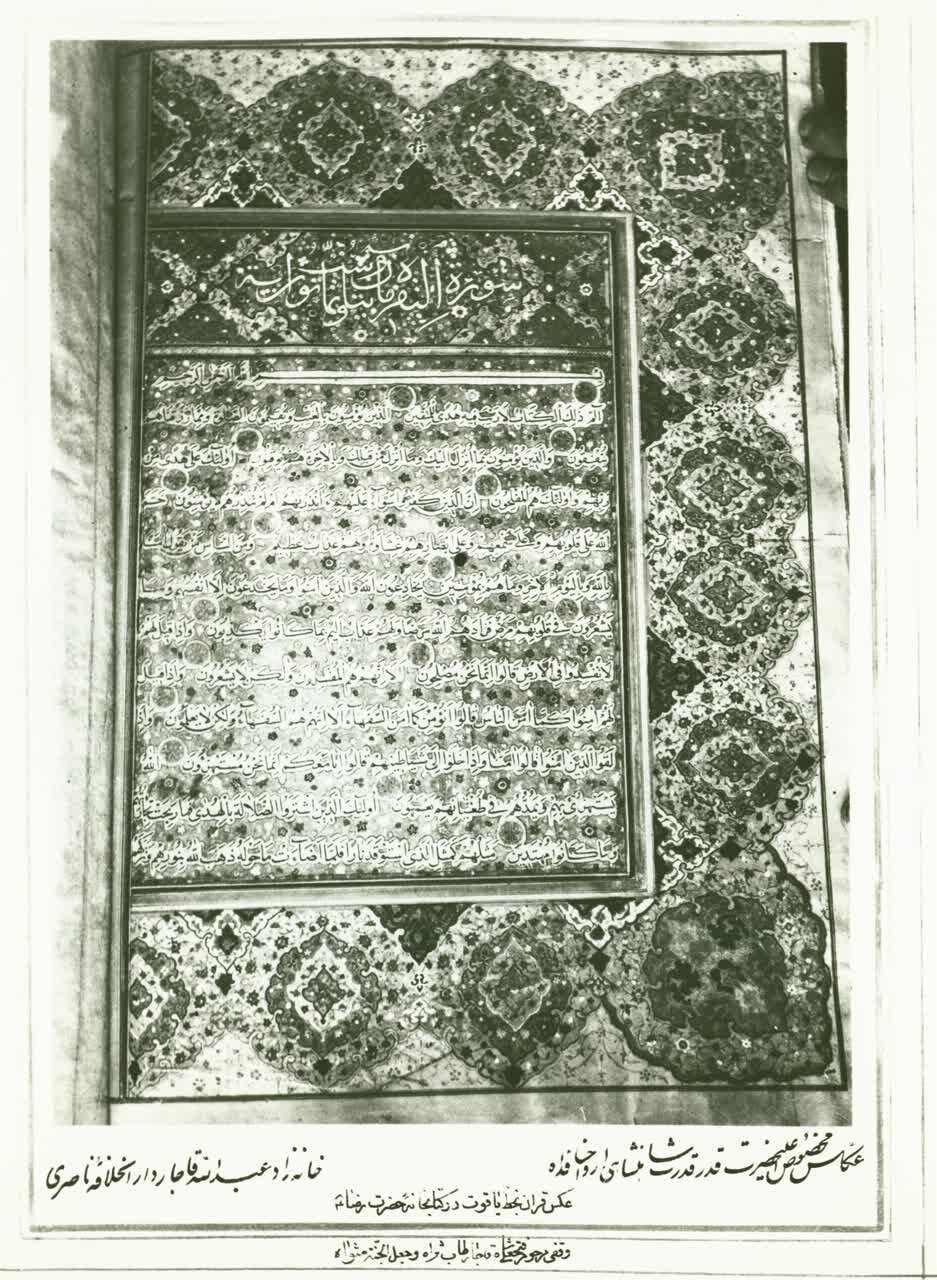 سورة البقرة مائتان وست وثمانون اية
بسم الله الرحمن الرحيم
الم ذلك الكتاب لا ريب فيه هدى للمتقين الذين يؤمنون بالغيب ويقيمون الصلوة ومما رزقناهم
ينفقون والذين يؤمنون بما انزل اليك وما انزل من قبلك وبالاخرة هم يوقنون اولئك على هدى من
ربهم واولئك هم المفلحون ان الذين كفروا سواء عليهم ءانذرتهم ام لم تنذرهم لا يؤمنون ختم
الله على قلوبهم وعلى سمعهم وعلى ابصارهم غشاوة ولهم عذاب عظيم ومن الناس من يقول امنا
بالله وباليوم الاخر وما هم بمؤمنين يخادعون الله والذين امنوا وما يخدعون الا انفسهم وما
يشعرون في قلوبهم مرض فزادهم الله مرضا ولهم عذاب اليم بما كانوا يكذبون واذا قيل لهم
لا تفسدوا في الارض قالوا انما نحن مصلحون الا انهم هم المفسدون ولكن لا يشعرون واذا قيل
لهم امنوا كما امن الناس قالوا انؤمن كما امن السفهاء الا انهم هم السفهاء ولكن لا يعلمون واذا
لقوا الذين امنوا قالوا امنا واذا خلوا الى شياطينهم قالوا انا معكم انما نحن مستهزؤن الله
يستهزئ بهم ويمدهم في طغيانهم يعمهون اولئك الذين اشتروا الضلالة بالهدى فما ربحت تجارتهم
وما كانوا مهتدين مثلهم كمثل الذي استوقد نارا فلما اضاءت ما حوله ذهب الله بنورهم وتركهم
عکاس مخصوص علیحضرت قدر قدرت شاهنشاهی ارواحنا فداه
خانه زاد عبدالله قاجار دار الخلافه ناصری
عکس قران بخط یاقوت در کتابخانه حضرت رضا
وقفی مرحوم فتحعلیشاه قاجار طاب ثراه وجعل الجنة مثواه